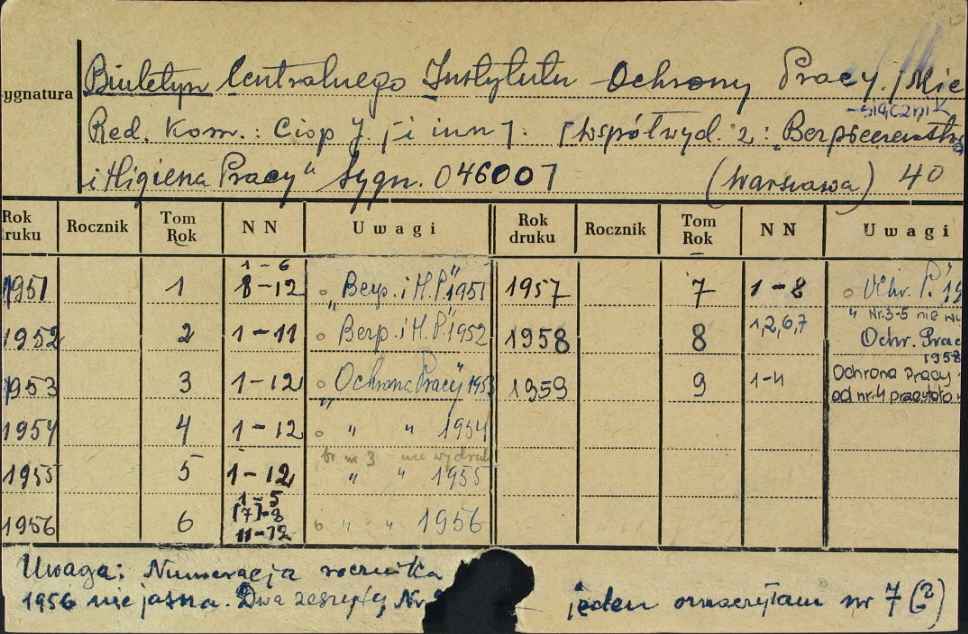 Biuletyn Centralnego Instytutu Ochrony Pracy. /Mie
ygnatura
-sięcznik
Red. Kom.: Ciop J. [i inn]. [Współwyd. z: „Bezpieczeństwo
i Higiena Pracy" Sygn. 046007 (Warszawa) 40
Rok ruku Rocznik Tom Rok NN Uwagi Rok druku Rocznik Tom Rok NN Uwagi
1951 1 1-6 8-12 „Bezp. i H.P." 1951 1957 7 1-8 Ochr. P."
" Nr.3-5 nie
1952 2 1-11 Bezp. i H.P." 1952 1958 8 1,2,6,7 Ochr. Prac
1958
1953 3 1-12 „Ochrona Pracy" 1953 1959 9 1-4 Ochrona Pracy
od nr.4
1954 4 1-12 " " 1954
br nr 3 nie wydruk
1955 5 1-12 " " 1955
1956 6 1-5 [7]-8 11-12 " " 1956
Uwaga: Numeracja rocznika
1956 niejasna. Dwa zeszyty Nr jeden oznaczyłam nr 7 (?)